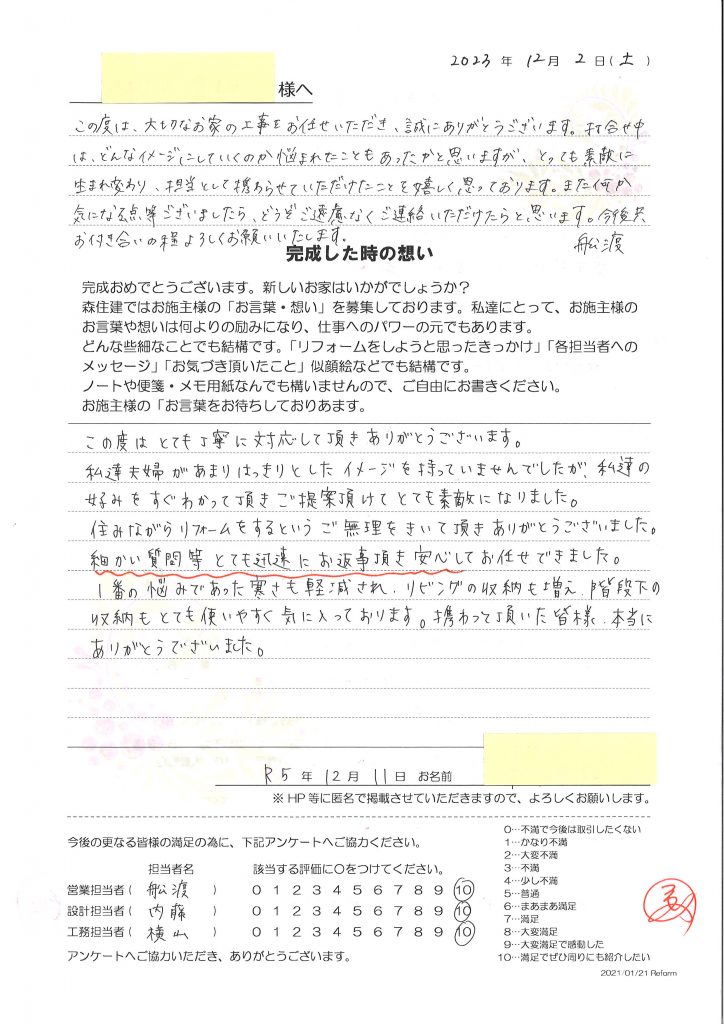 2023年 12月 2日(土)
様へ
この度は、大切なお家の工事をお任せいただき、誠にありがとうございます。打合せ中
は、どんなイメージにしていくのか悩まれたこともあったかと思いますが、とっても素敵に
生まれ変わり、担当として携わらせていただけたことを嬉しく思っております。また何か
気になる点等ございましたら、どうぞご遠慮なくご連絡いただけたらと思います。今後共
お付き合いの程よろしくお願いいたします。
舩渡
完成した時の想い
完成おめでとうございます。新しいお家はいかがでしょうか?
森住建ではお施主様の「お言葉・想い」を募集しております。私達にとって、お施主様の
お言葉や想いは何よりの励みになり、仕事へのパワーの元でもあります。
どんな些細なことでも結構です。「リフォームをしようと思ったきっかけ」「各担当者への
メッセージ」「お気づき頂いたこと」似顔絵などでも結構です。
ノートや便箋・メモ用紙なんでも構いませんので、ご自由にお書きください。
お施主様の「お言葉をお待ちしておりあます。
この度はとても丁寧に対応して頂きありがとうございます。
私達夫婦があまりはっきりとしたイメージを持っていませんでしたが、私達の
好みをすぐわかって頂きご提案頂けてとても素敵になりました。
住みながらリフォームをするというご無理をきいて頂きありがとうございました。
細かい質問等とても迅速にお返事頂き安心してお任せできました。
1番の悩みであった寒さも軽減され、リビングの収納も増え、階段下の
収納もとても使いやすく気に入っております。携わって頂いた皆様、本当に
ありがとうございました。
R5年12月11日 お名前
※HP等に匿名で掲載させていただきますので、よろしくお願いします。
今後の更なる皆様の満足の為に、下記アンケートへご協力ください。
担当者名 該当する評価に○をつけてください。
営業担当者( 舩渡 ) 0 1 2 3 4 5 6 7 8 9 10
設計担当者( 内藤 ) 0 1 2 3 4 5 6 7 8 9 10
工務担当者( 横山 ) 0 1 2 3 4 5 6 7 8 9 10
アンケートへご協力いただき、ありがとうございます。
0…不満で今後は取引したくない
1…かなり不満
2…大変不満
3…不満
4…少し不満
5…普通
6…まあまあ満足
7…満足
8…大変満足
9…大変満足で感動した
10…満足でぜひ周りにも紹介したい
2021/01/21 Reform